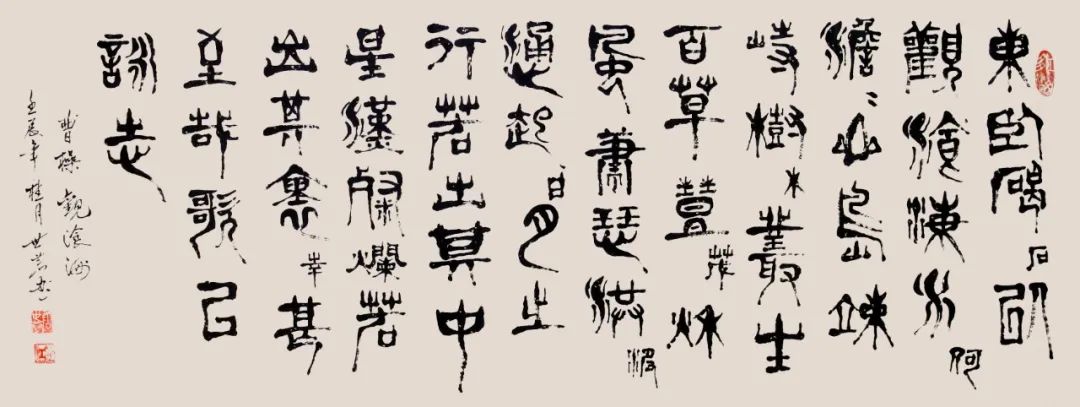 東臨碣石以
觀滄海水何
澹〻山島竦
峙樹木叢生
百草豐茂秋
風蕭瑟洪波
涌起日月之
行若出其中
星漢燦爛若
出其裏幸甚
至哉歌以
詠志
曹操觀滄海
壬辰年桂月世書